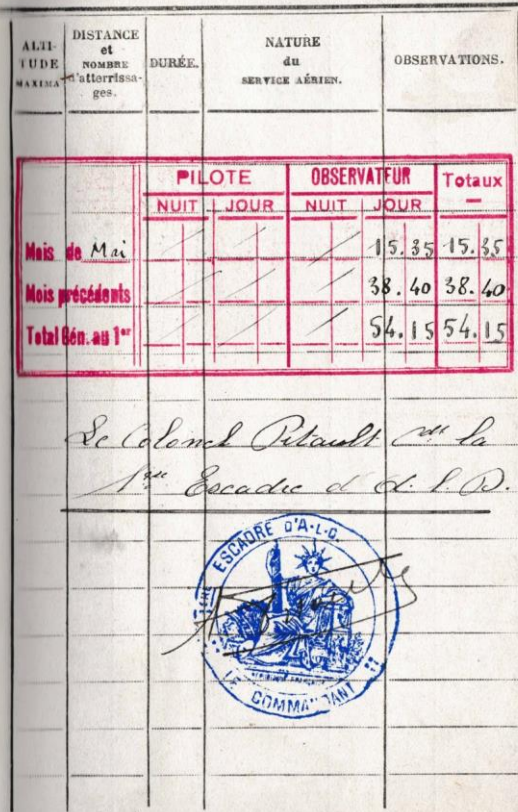 ALTI-TUDE MAXIMA DISTANCE et NOMBRE d'atterrissa-ges. DURÉE. NATURE du SERVICE AÉRIEN. OBSERVATIONS.
PILOTE OBSERVATEUR Totaux
NUIT JOUR NUIT JOUR
Mois de Mai 15.35 15.35
Mois précédents 38.40 38.40
Total Gén. au 1er 54.15 54.15
Le Colonel Pitault cdt la
1ère Escadre d'A.L.D.
1ERE ESCADRE D'A-L-D.
LE COMMANDANT